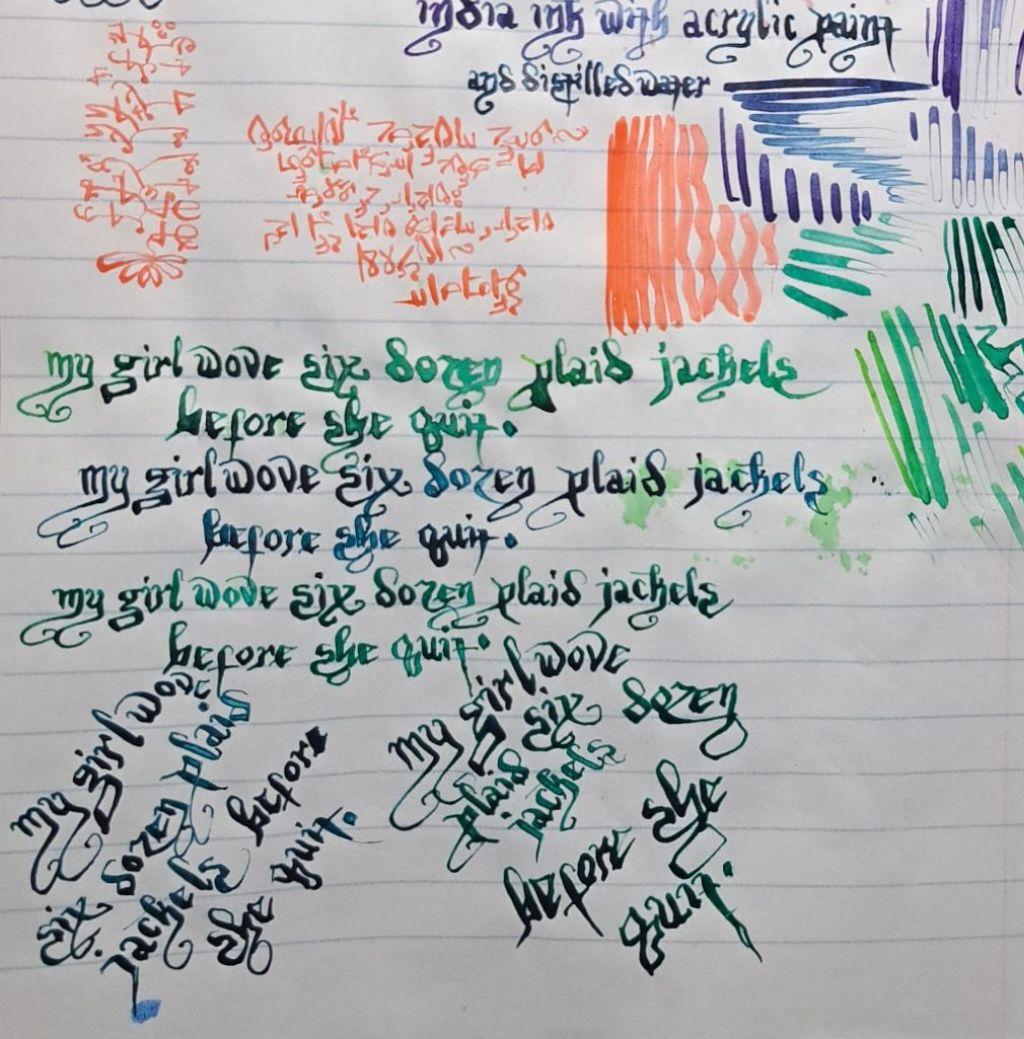 india ink with acrylic paint
and distilled water
my girl wove six dozen plaid jackets
before she quit.
my girl wove six dozen plaid jackets
before she quit.
my girl wove six dozen plaid jackets
before she quit.
my girl wove
six dozen plaid
jackets before
she quit.
my girl wove
six dozen
plaid
jackets
before she
quit.